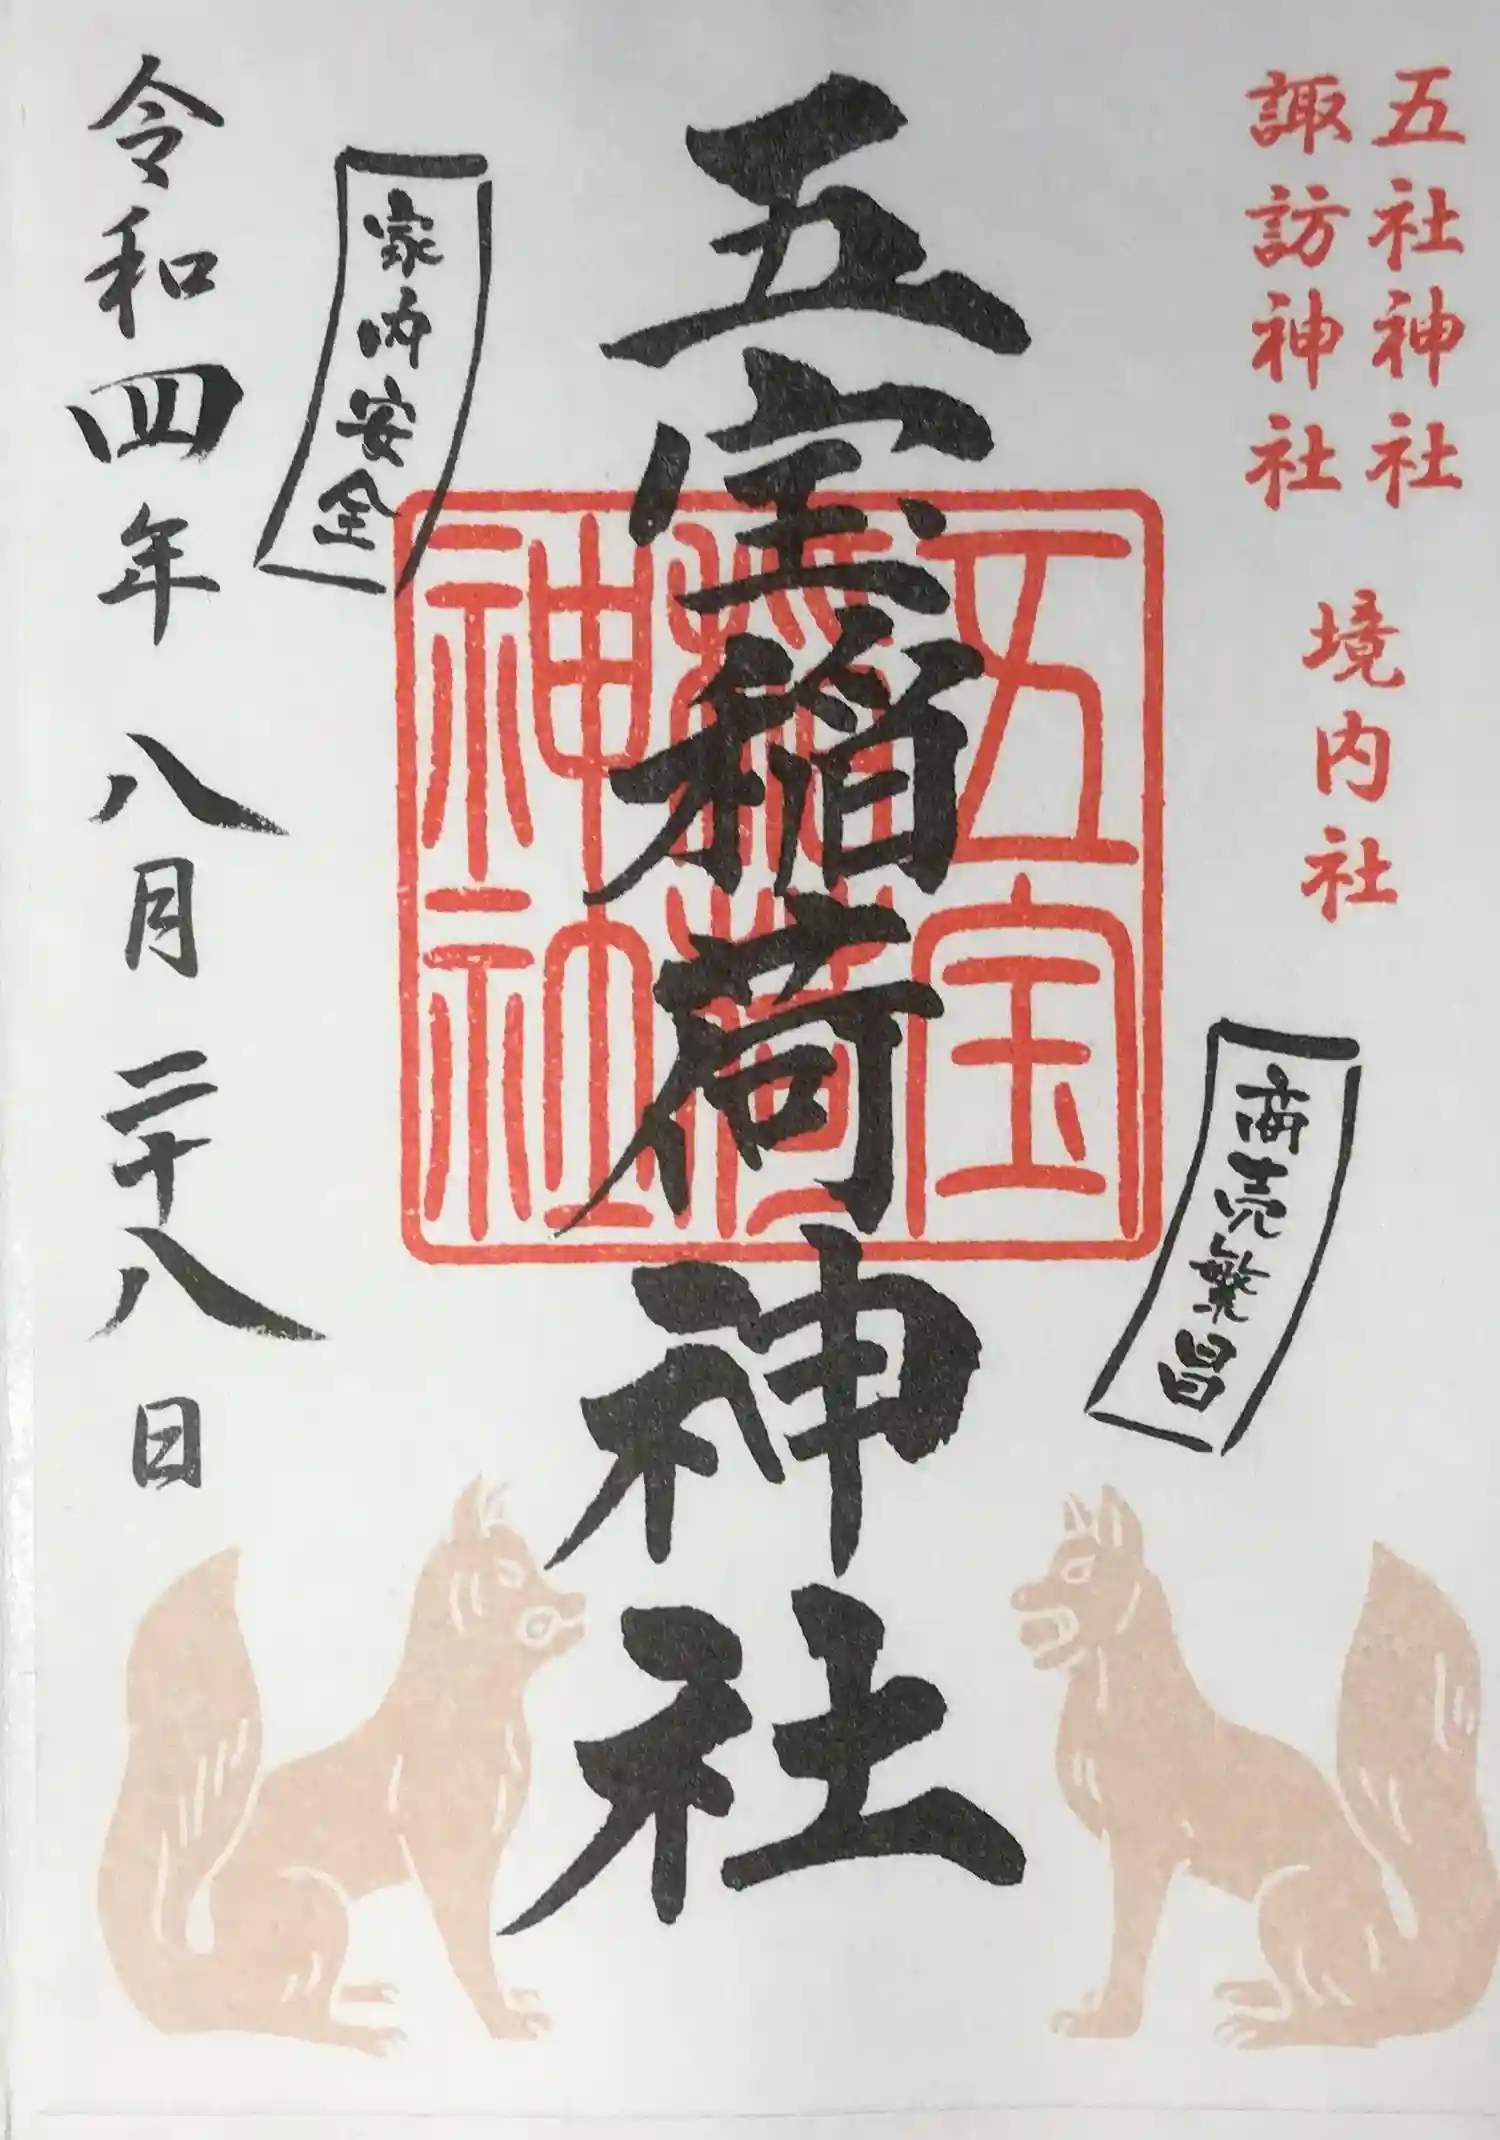 五社神社
諏訪神社
境内社
商売繁昌
五宝稲荷神社
五宝
稲荷
神社
家内安全
令和四年 八月 二十八日